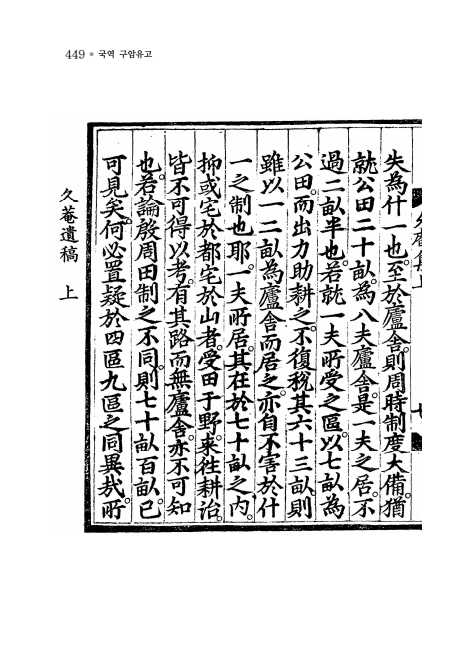 449 ● 국역 구암유고
失為什一也。至於廬舍。則周時制度大備。猶
就公田二十畝。為八夫廬舍。是一夫之居。不
過二畝半也。若就一夫所受之區。以七畝為
公田。而出力助耕之。不復稅其六十三畝。則
雖以一二畝為廬舍而居之。亦自不害於什
一之制也耶。一夫所居。其在於七十畝之內。
抑或宅於都宅於山者。受田于野。來往耕治。
皆不可得以考。有其路而無廬舍。亦不可知
也。若論殷周田制之不同。則七十畝百畝。已
可見矣。何必置疑於四區九區之同異哉。所
久菴遺稿 上